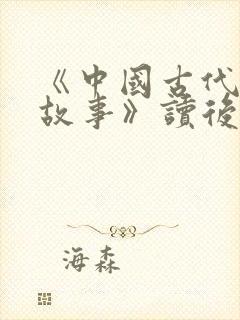 《中國古代
故事》讀後
海森